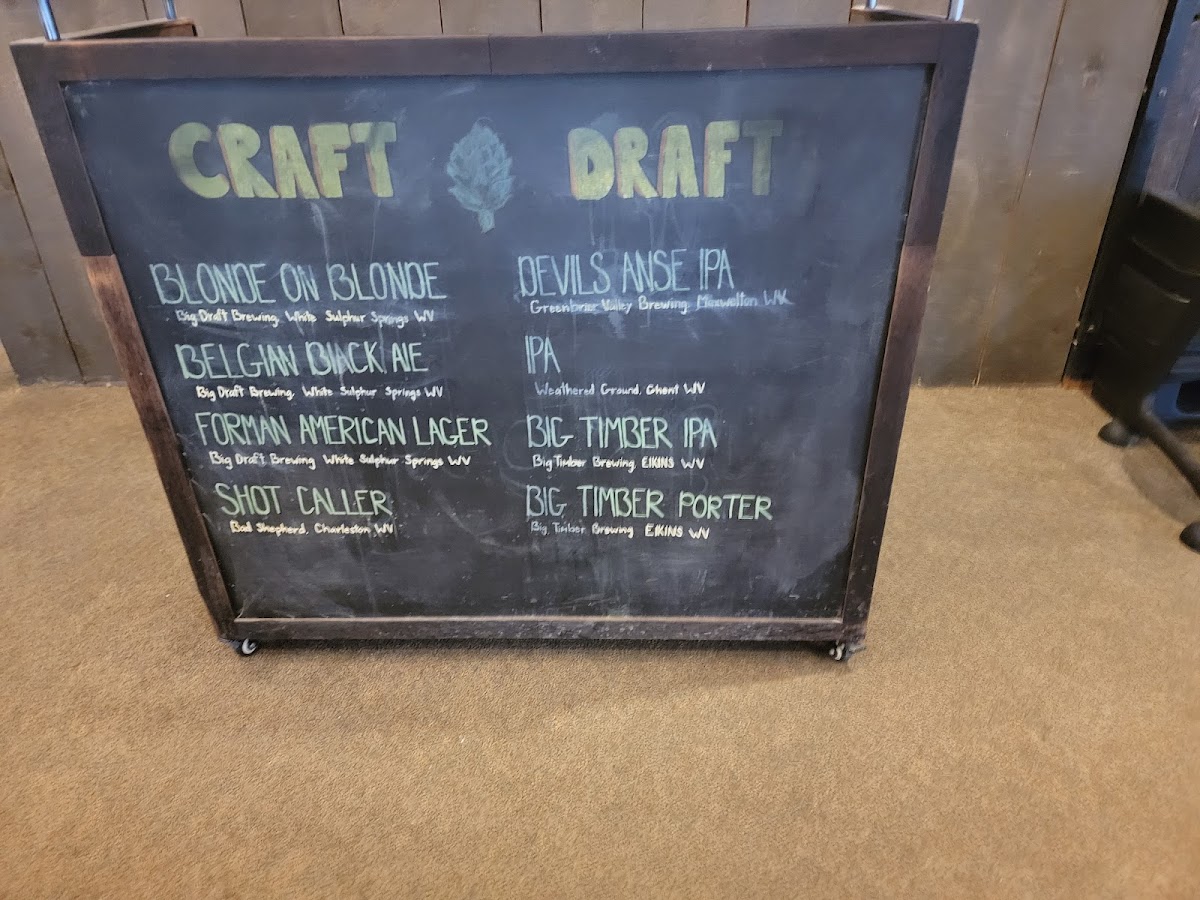 CRAFT DRAFT
BLONDE ON BLONDE
Big Draft Brewing, White Sulphur Springs WV
BELGIAN BLACK ALE
Big Draft Brewing, White Sulphur Springs WV
FORMAN AMERICAN LAGER
Big Draft Brewing White Sulphur Springs WV
SHOT CALLER
Bad Shepherd, Charleston, WV
DEVILS ANSE IPA
Greenbrier Valley Brewing, Maxwelton WV
IPA
Weathered Ground, Ghent WV
BIG TIMBER IPA
Big Timber Brewing, ElKINS WV
BIG TIMBER PORTER
Big Timber Brewing ElKINS WV